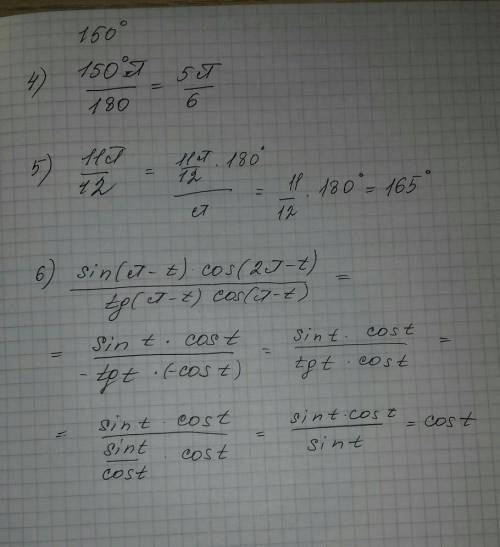 150°
4) 150°π / 180 = 5π / 6
5) 11π / 12 = 11π / 12 · 180° / π = 11 / 12 · 180° = 165°
6) sin(π - t) · cos(2π - t) / tg(π - t) cos(π - t) =
= sin t · cos t / - tg t · (- cos t) = sin t · cos t / tg t · cos t =
= sin t · cos t / sin t / cos t · cos t = sin t · cos t / sin t = cos t